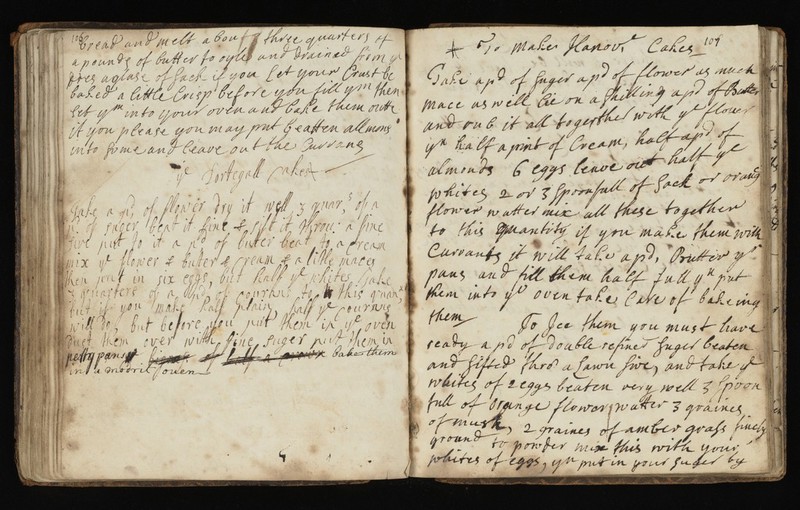 108
bread and melt about three quarters of
a pound of butter to oyle and drained from ye
a glase of sack if you Let your Crust be
baked a little Crisp before you fill ym then
set ym into your oven and bake them
if you please you may put beatten allmons
into some and leave out the Currans
ye Portegall cakes
Take a pd of flower dry it well 3 quar:s of a
pd of suger beat it fine & sift it throu: a fine
sive put to it a pd of buter beat to a cream
mix ye flower & buter & cream & a little maces
then put in six eggs, but half ye whites take
3 quarters of a pd of Courans to this quan
but if you make half plain half ye courns
will do, but before you put them in ye oven
dust them over with fine suger put them in
petty pans bake them
in a oven
109
To make Hanovr Cakes
Take a pd of suger a pd of flower as much
mace as will lie on a shilling a pd of Butter
and rub it all together with ye flower
yn half a pint of Cream, half a pd of
almonds 6 eggs leave out half ye
whites 2 or 3 spoonfull of Sack or orang
flower watter mix all these together
to this quantity if you make them with
Currants it will take a pd, Butter yr
pans and fill them half full yn put
them into ye oven take Care of bakeing
them
To Jce them you must have
ready a pd of double refine suger beaten
and sifted thro a Lawn sive, and take ye
whites of 2 eggs beaten very well 3 spoon
full of orange flower watter 3 graines
of musk, 2 graines of amber grass finely
ground to powder mix this with your
whites of eggs, yn put in your suger by